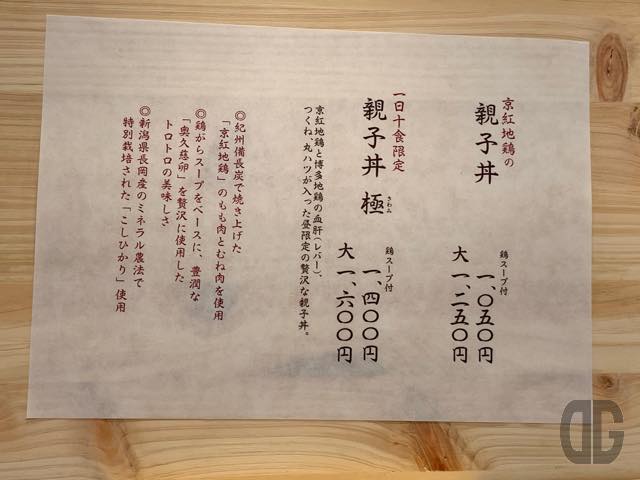 京紅地鶏の
親子丼
鶏スープ付
一、〇五〇円
大 一、二五〇円
一日十食限定
親子丼 極
きわみ
鶏スープ付
一、四〇〇円
大 一、六〇〇円
京紅地鶏と博多地鶏の血肝(レバー)、
つくね、丸ハツが入った昼限定の贅沢な親子丼。
◎紀州備長炭で焼き上げた
「京紅地鶏」のもも肉とむね肉を使用
◎鶏がらスープをベースに、豊潤な
「奥久慈卵」を贅沢に使用した
トロトロの美味しさ
◎新潟県長岡産のミネラル農法で
特別栽培された「こしひかり」使用
DG